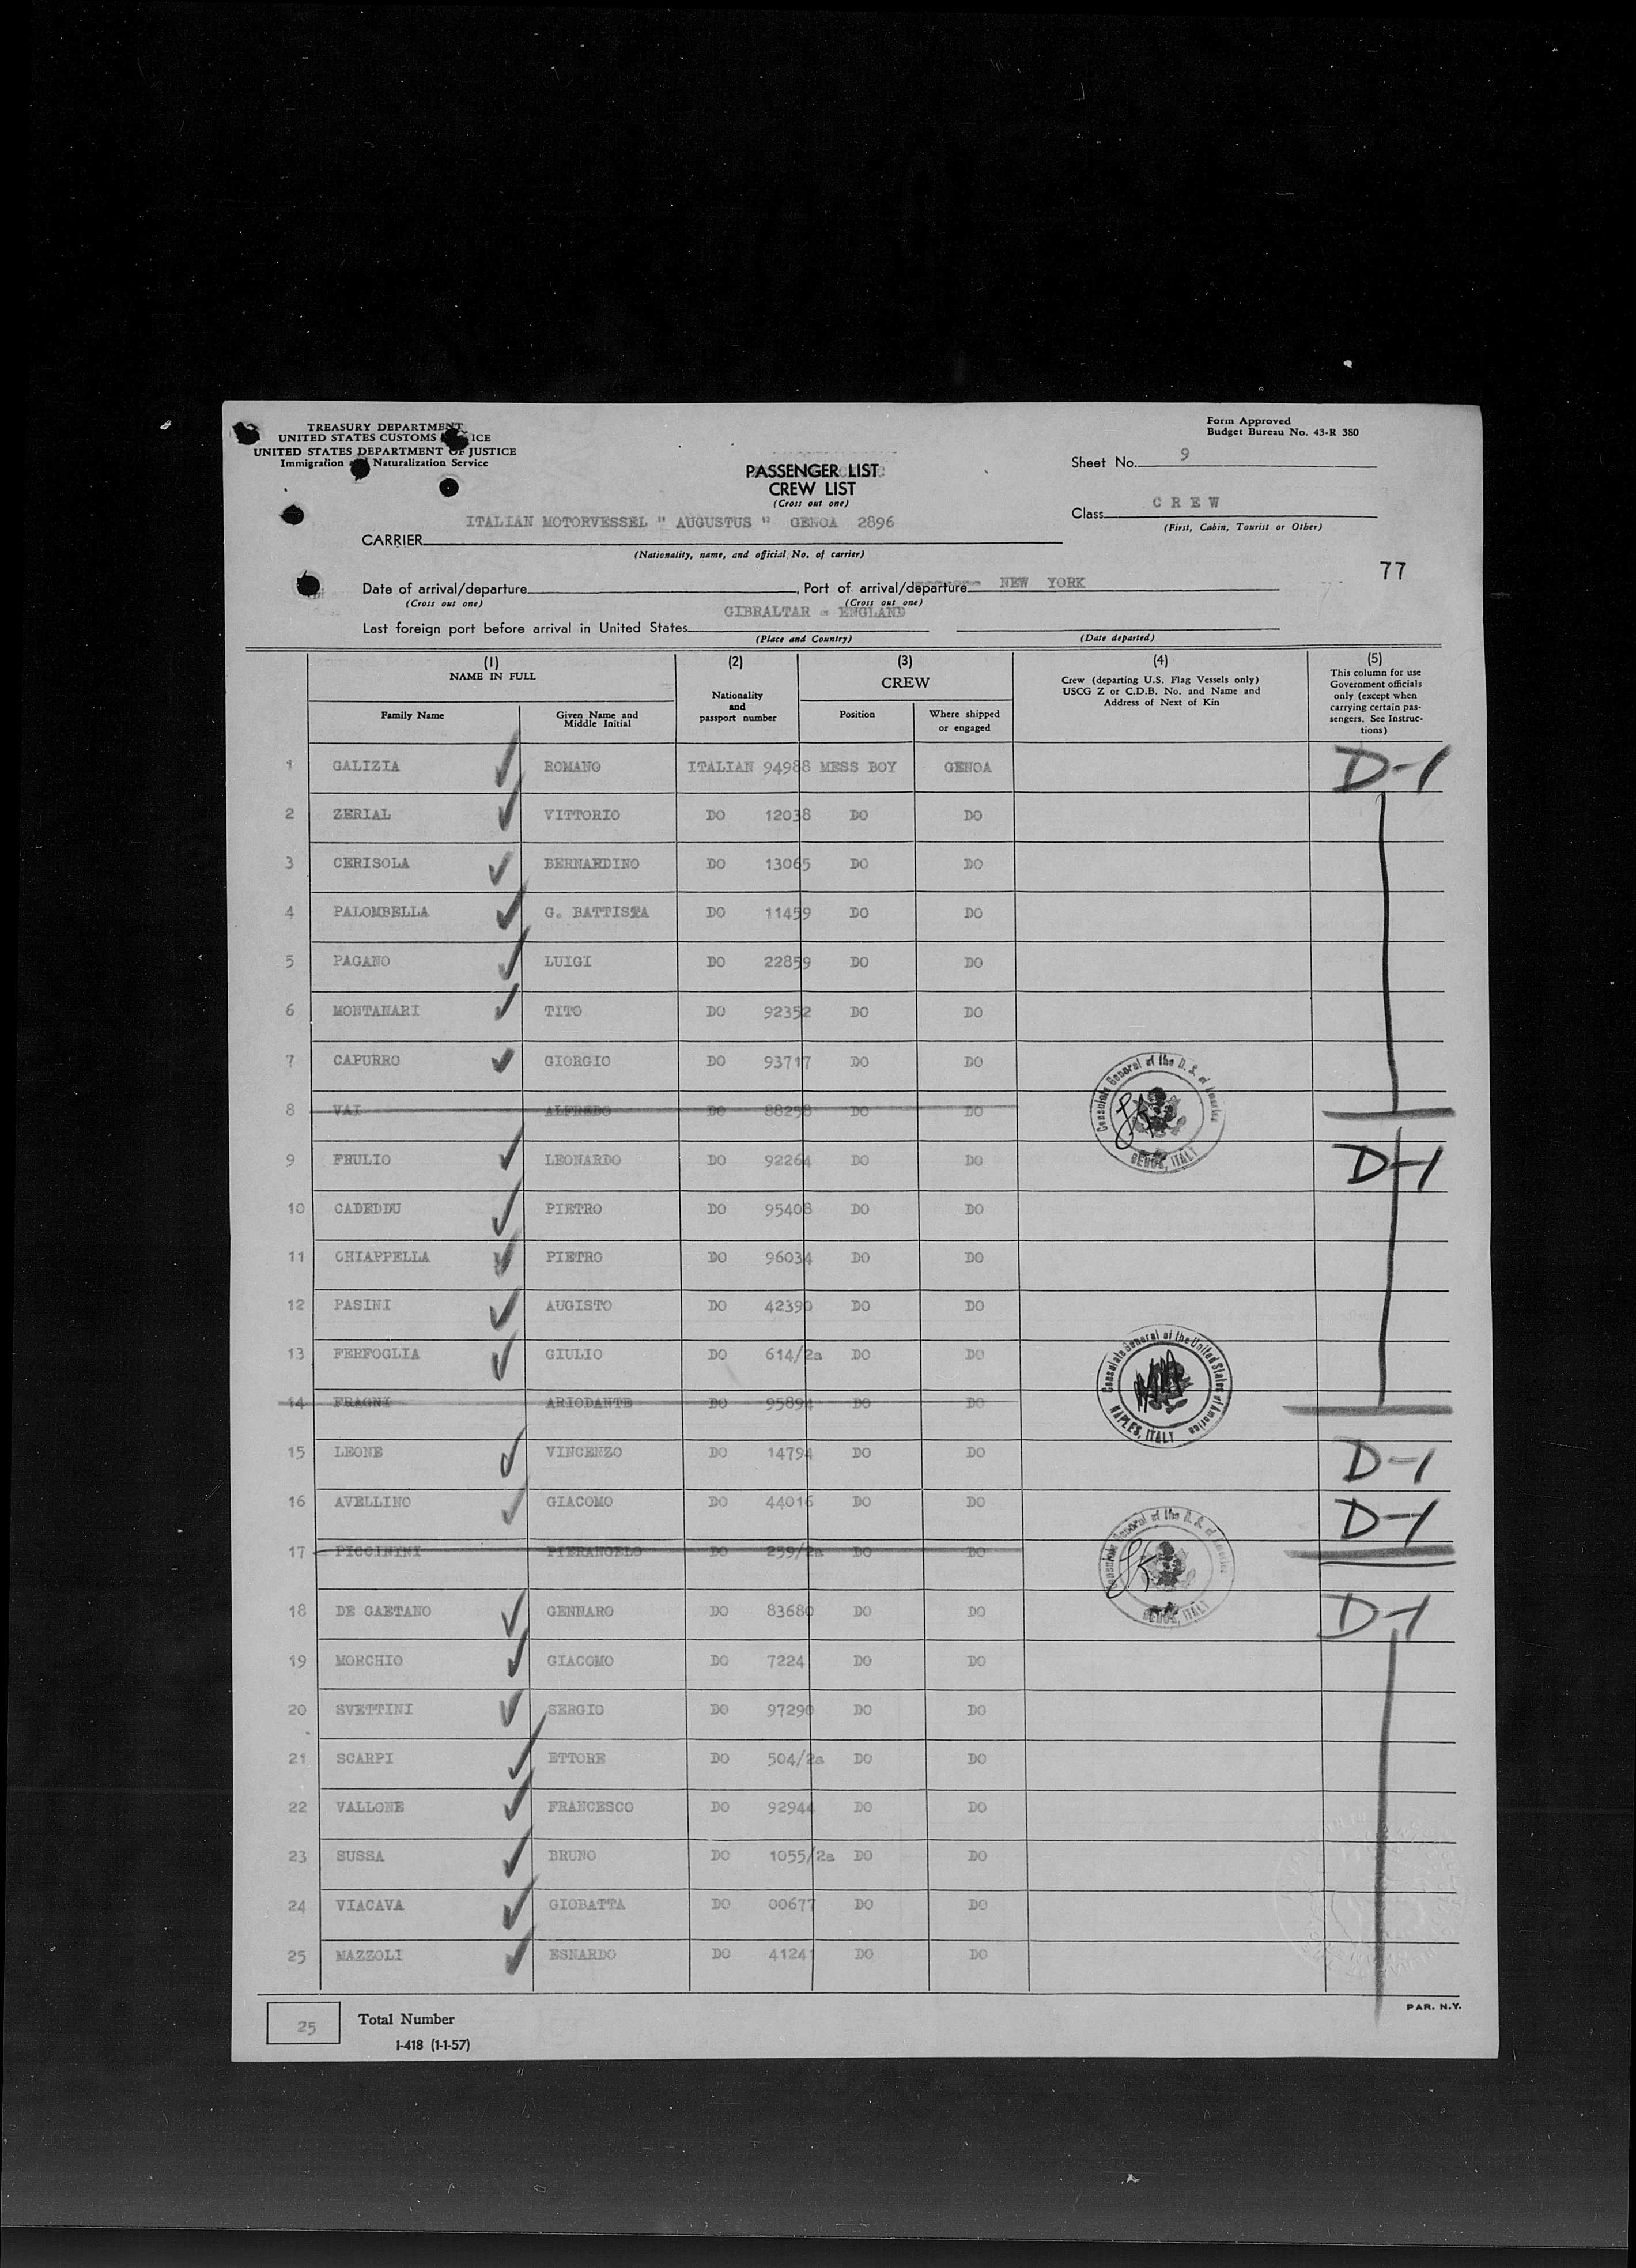 TREASURY DEPARTMENT
UNITED STATES CUSTOMS ICE
UNITED STATES DEPARTMENT OF JUSTICE
Immigration Naturalization Service
Form Approved
Budget Bureau No. 43-R 380
PASSENGER LIST
CREW LIST
(Cross out one)
Sheet No. 9
Class CREW
(First, Cabin, Tourist or Other)
CARRIER ITALIAN MOTORVESSEL " AUGUSTUS " GENOA 2896
(Nationality, name, and official No. of carrier)
77
Date of arrival/departure , Port of arrival/departure NEW YORK
(Cross out one) (Cross out one)
Last foreign port before arrival in United States GIBRALTAR - ENGLAND
(Place and Country) (Date departed)
(1) (2) (3) (4) (5)
NAME IN FULL Nationality and passport number CREW Crew (departing U.S. Flag Vessels only) USCG Z or C.D.B. No. and Name and Address of Next of Kin This column for use Government officials only (except when carrying certain passengers. See Instructions)
Family Name Given Name and Middle Initial Position Where shipped or engaged
1 GALIZIA ROMANO ITALIAN 94988 MESS BOY GENOA D-1
2 ZERIAL VITTORIO DO 12038 DO DO
3 CERISOLA BERNARDINO DO 13065 DO DO
4 PALOMBELLA G. BATTISTA DO 11459 DO DO
5 PAGANO LUIGI DO 22859 DO DO
6 MONTANARI TITO DO 92352 DO DO
7 CAPURRO GIORGIO DO 93717 DO DO
8 VAI ALFREDO DO 88258 DO DO
Consulate General of the U. S. of America
GENOA, ITALY
9 FRULIO LEONARDO DO 92264 DO DO D-1
10 CADEDDU PIETRO DO 95408 DO DO
11 CHIAPPELLA PIETRO DO 96034 DO DO
12 PASINI AUGISTO DO 42390 DO DO
13 FERFOGLIA GIULIO DO 614/2a DO DO
14 FRAGNI ARIODANTE DO 95894 DO DO
Consulate General of the United States of America
NAPLES, ITALY
15 LEONE VINCENZO DO 14794 DO DO D-1
16 AVELLINO GIACOMO DO 44016 DO DO D-1
17 PICCININI PIERANGELO DO 259/2a DO DO
Consulate General of the U. S. of America
GENOA, ITALY
18 DE GAETANO GENNARO DO 83680 DO DO D-1
19 MORCHIO GIACOMO DO 7224 DO DO
20 SVETTINI SERGIO DO 97290 DO DO
21 SCARPI ETTORE DO 504/2a DO DO
22 VALLONE FRANCESCO DO 92944 DO DO
23 SUSSA BRUNO DO 1055/2a DO DO
24 VIACAVA GIOBATTA DO 00677 DO DO
25 MAZZOLI ESNARDO DO 41241 DO DO
25 Total Number
PAR. N.Y.
I-418 (1-1-57)